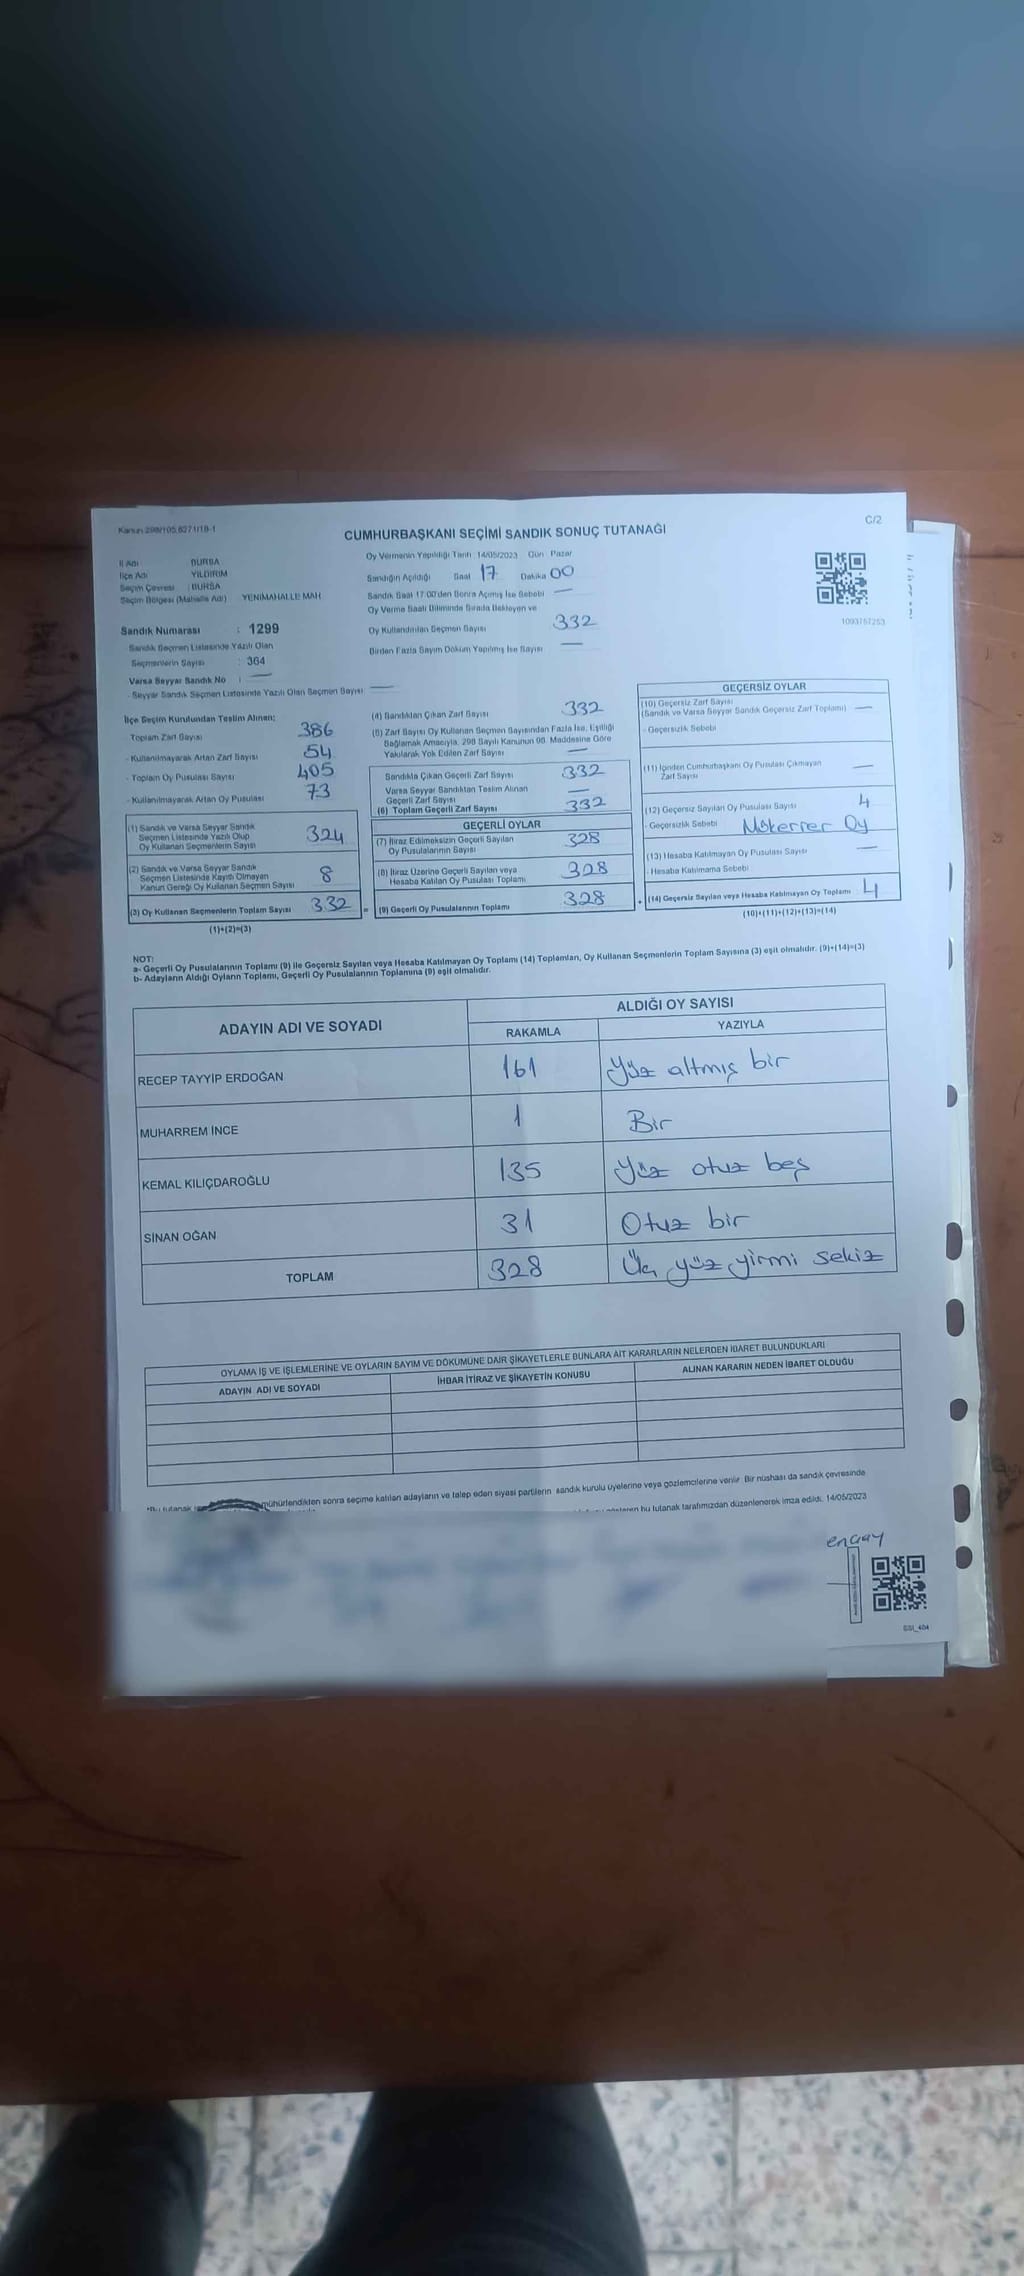 Kanun 298/105,6271/18-1
C/2
CUMHURBAŞKANI SEÇİMİ SANDIK SONUÇ TUTANAĞI
İl Adı BURSA
İlçe Adı YILDIRIM
Seçim Çevresi : BURSA
Seçim Bölgesi (Mahalle Adı) YENİMAHALLE MAH
Sandık Numarası : 1299
Sandık Seçmen Listesinde Yazılı Olan
Seçmenlerin Sayısı : 364
Varsa Seyyar Sandık No : —
- Seyyar Sandık Seçmen Listesinde Yazılı Olan Seçmen Sayısı —
Oy Vermenin Yapıldığı Tarih 14/05/2023 Gün Pazar
Sandığın Açıldığı Saat 17 Dakika 00
Sandık Saat 17:00'den Sonra Açılmış İse Sebebi —
Oy Verme Saati Bitiminde Sırada Bekleyen ve
Oy Kullandırılan Seçmen Sayısı 332
Birden Fazla Sayım Döküm Yapılmış İse Sayısı —
1093757253
İlçe Seçim Kurulundan Teslim Alınan;
- Toplam Zarf Sayısı 386
- Kullanılmayarak Artan Zarf Sayısı 54
- Toplam Oy Pusulası Sayısı 405
- Kullanılmayarak Artan Oy Pusulası 73
(1) Sandık ve Varsa Seyyar Sandık
Seçmen Listesinde Yazılı Olup
Oy Kullanan Seçmenlerin Sayısı 324
(2) Sandık ve Varsa Seyyar Sandık
Seçmen Listesinde Kayıtlı Olmayan
Kanun Gereği Oy Kullanan Seçmen Sayısı 8
(3) Oy Kullanan Seçmenlerin Toplam Sayısı 332
(1)+(2)=(3)
(4) Sandıktan Çıkan Zarf Sayısı 332
(5) Zarf Sayısı Oy Kullanan Seçmen Sayısından Fazla İse, Eşitliği
Sağlamak Amacıyla, 298 Sayılı Kanunun 98. Maddesine Göre
Yakılarak Yok Edilen Zarf Sayısı —
Sandıkta Çıkan Geçerli Zarf Sayısı 332
Varsa Seyyar Sandıktan Teslim Alınan
Geçerli Zarf Sayısı —
(6) Toplam Geçerli Zarf Sayısı 332
GEÇERLİ OYLAR
(7) İtiraz Edilmeksizin Geçerli Sayılan
Oy Pusulalarının Sayısı 328
(8) İtiraz Üzerine Geçerli Sayılan veya
Hesaba Katılan Oy Pusulaları Toplamı 328
= (9) Geçerli Oy Pusulalarının Toplamı 328
GEÇERSİZ OYLAR
(10) Geçersiz Zarf Sayısı
(Sandık ve Varsa Seyyar Sandık Geçersiz Zarf Toplamı) —
- Geçersizlik Sebebi
(11) İçinden Cumhurbaşkanı Oy Pusulası Çıkmayan
Zarf Sayısı —
(12) Geçersiz Sayılan Oy Pusulası Sayısı 4
- Geçersizlik Sebebi Mükerrer Oy
(13) Hesaba Katılmayan Oy Pusulası Sayısı —
- Hesaba Katılmama Sebebi
+ (14) Geçersiz Sayılan veya Hesaba Katılmayan Oy Toplamı 4
(10)+(11)+(12)+(13)=(14)
NOT:
a- Geçerli Oy Pusulalarının Toplamı (9) ile Geçersiz Sayılan veya Hesaba Katılmayan Oy Toplamı (14) Toplamları, Oy Kullanan Seçmenlerin Toplam Sayısına (3) eşit olmalıdır. (9)+(14)=(3)
b- Adayların Aldığı Oyların Toplamı, Geçerli Oy Pusulalarının Toplamına (9) eşit olmalıdır.
ADAYIN ADI VE SOYADI ALDIĞI OY SAYISI
RAKAMLA YAZIYLA
RECEP TAYYİP ERDOĞAN 161 Yüz altmış bir
MUHARREM İNCE 1 Bir
KEMAL KILIÇDAROĞLU 135 Yüz otuz beş
SİNAN OĞAN 31 Otuz bir
TOPLAM 328 Üç yüz yirmi sekiz
OYLAMA İŞ VE İŞLEMLERİNE VE OYLARIN SAYIM VE DÖKÜMÜNE DAİR ŞİKAYETLERLE BUNLARA AİT KARARLARIN NELERDEN İBARET BULUNDUKLARI
ADAYIN ADI VE SOYADI İHBAR İTİRAZ VE ŞİKAYETİN KONUSU ALINAN KARARIN NEDEN İBARET OLDUĞU
*Bu tutanak mühürlendikten sonra seçime katılan adayların ve talep eden siyasi partilerin sandık kurulu üyelerine veya gözlemcilerine verilir. Bir nüshası da sandık çevresinde
gösteren bu tutanak tarafımızdan düzenlenerek imza edildi. 14/05/2023